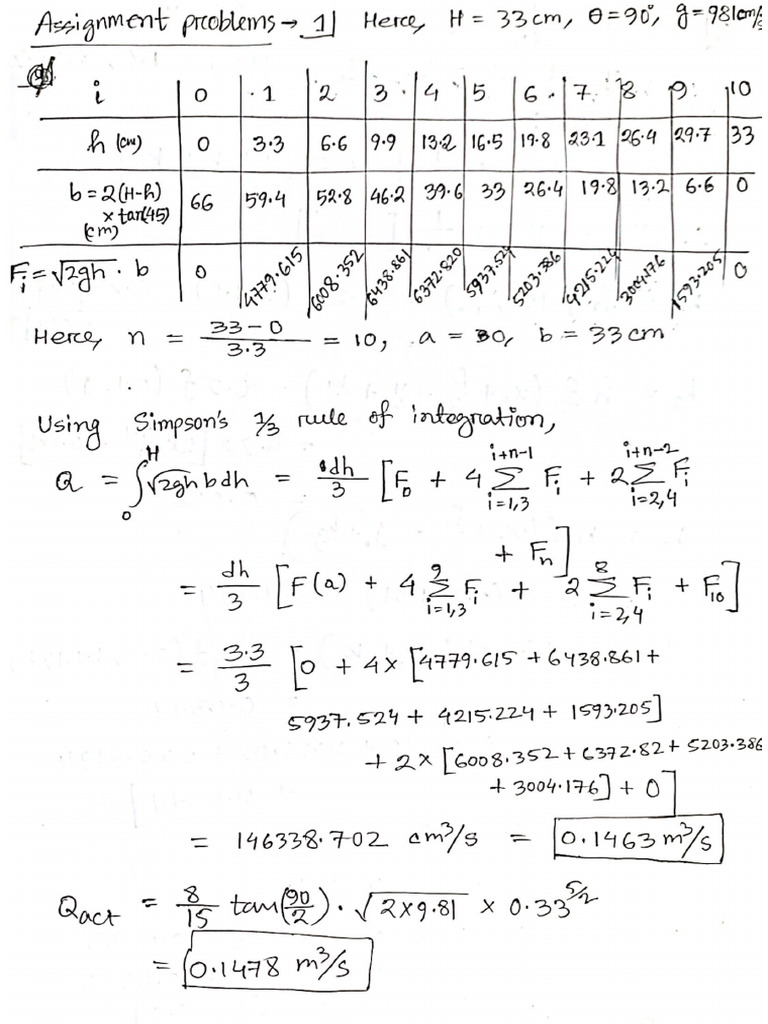 Assignment problems → 1] Here, H = 33cm, θ = 90°, g = 981cm/s
i 0 1 2 3 4 5 6 7 8 9 10
h (cm) 0 3.3 6.6 9.9 13.2 16.5 19.8 23.1 26.4 29.7 33
b = 2(H-h) × tan(45) (cm) 66 59.4 52.8 46.2 39.6 33 26.4 19.8 13.2 6.6 0
Fᵢ = √2gh · b 0 4779.615 6008.352 6438.861 6372.820 5937.524 5203.386 4215.224 3004.176 1593.205 0
Here, n = (33-0)/3.3 = 10, a = 0, b = 33 cm
Using Simpson's 1/3 rule of integration,
Q = ∫₀ᴴ √2gh b dh = dh/3 [F₀ + 4 Σ_{i=1,3}^{i+n-1} Fᵢ + 2 Σ_{i=2,4}^{i+n-2} Fᵢ
+ Fₙ]
= dh/3 [F(a) + 4 Σ_{i=1,3}^{9} Fᵢ + 2 Σ_{i=2,4}^{8} Fᵢ + F₁₀]
= 3.3/3 [0 + 4× [4779.615 + 6438.861 +
5937.524 + 4215.224 + 1593.205]
+ 2× [6008.352 + 6372.82 + 5203.386
+ 3004.176] + 0]
= 146338.702 cm³/s = 0.1463 m³/s
Qact = 8/15 tan(90/2) · √2×9.81 × 0.33^5/2
= 0.1478 m³/s